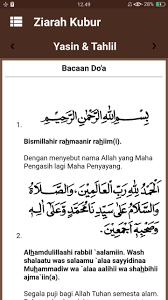 12.49
28%
Ziarah Kubur
Yasin & Tahlil
Bacaan Do'a
بِسْمِ اللهِ الرَّحْمٰنِ الرَّحِيْمِ
1.
Bismillahir raḥmaanir raḥiim(i).
Dengan menyebut nama Allah yang Maha
Pengasih lagi Maha Penyayang.
اَلْحَمْدُ لِلّٰهِ رَبِّ الْعَالَمِيْنَ، وَالصَّلَاةُ
وَالسَّلَامُ عَلَى سَيِّدِنَا مُحَمَّدٍ وَعَلَى اٰلِهِ
وَصَحْبِهِ اَجْمَعِيْنَ.
2.
Alḥamdulillaahi rabbil `aalamiin. Wash
shalaatu was salaamu `alaa sayyidinaa
Muḥammadiw wa `alaa aalihii wa shaḥbihii
ajma`iin(a).
Segala puji bagi Allah Tuhan semesta alam.